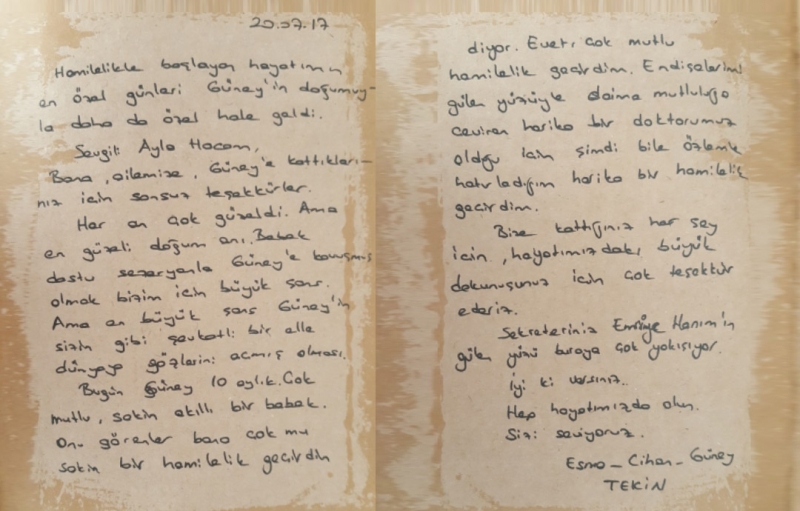 20.07.17
Hamilelikle başlayan hayatımın
en özel günleri Güney'in doğumuy-
la daha da özel hale geldi.
Sevgili Ayla Hocam,
Bana, ailemize, Güney'e kattıkları-
nız için sonsuz teşekkürler.
Her an çok güzeldi. Ama
en güzeli doğum anı. Bebek
dostu sezaryenle Güney'e kavuşmuş
olmak bizim için büyük şans.
Ama en büyük şans Güney'in
sizin gibi şevkatli bir elle
dünyaya gözlerini açmış olması.
Bugün Güney 10 aylık. Çok
mutlu, sakin akıllı bir bebek.
Onu görenler bana çok mu
sakin bir hamilelik geçirdin
diyor. Evet, çok mutlu
hamilelik geçirdim. Endişelerimi
gülen yüzüyle daima mutluluğa
çeviren harika bir doktorumuz
olduğu için şimdi bile özlemle
hatırladığım harika bir hamilelik
geçirdim.
Bize kattığınız her şey
için, hayatımızdaki büyük
dokunuşunuz için çok teşekkür
ederiz.
Sekreteriniz Emriye Hanım'ın
gülen yüzü buraya çok yakışıyor.
İyi ki varsınız.
Hep hayatımızda olun.
Sizi seviyoruz.
Esma - Cihan - Güney
TEKİN